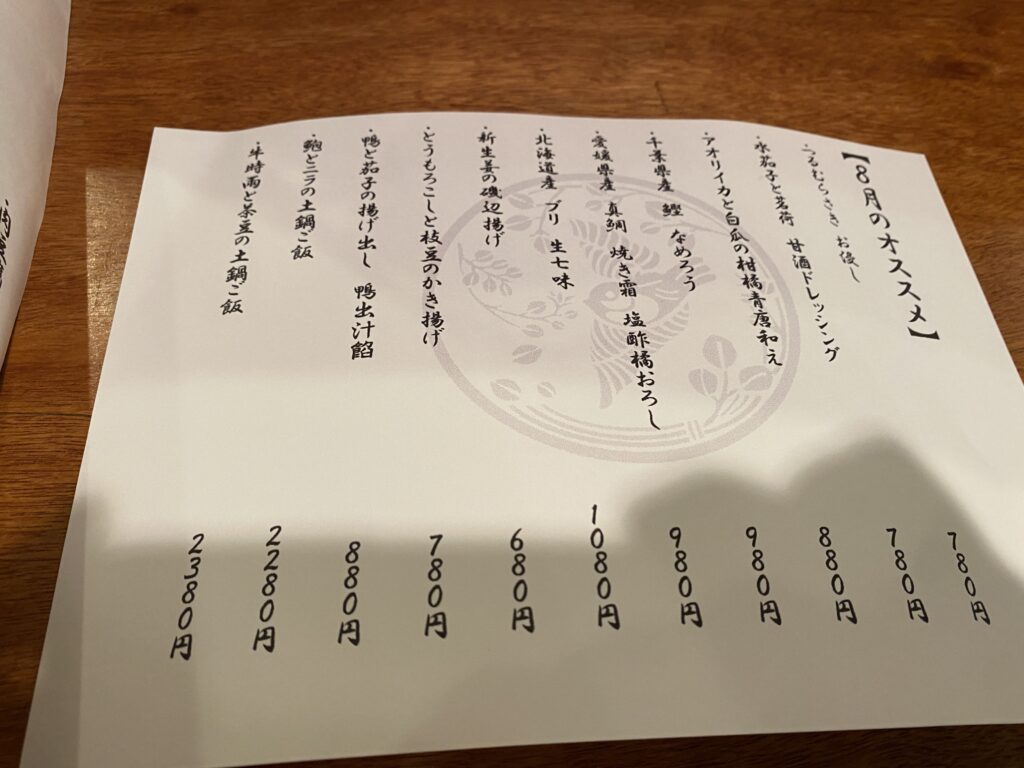 【8月のオススメ】
・つるむらさき お浸し 780円
・水茄子と茗荷 甘酒ドレッシング 780円
・アオリイカと白瓜の柑橘青唐和え 880円
・千葉県産 鰹 なめろう 980円
・愛媛県産 真鯛 焼き霜 塩酢橘おろし 980円
・北海道産 ブリ 生七味 1080円
・新生姜の磯辺揚げ 680円
・とうもろこしと枝豆のかき揚げ 780円
・鴨と茄子の揚げ出し 鴨出汁餡 880円
・鮑とニラの土鍋ご飯 2280円
・牛時雨と茶豆の土鍋ご飯 2380円